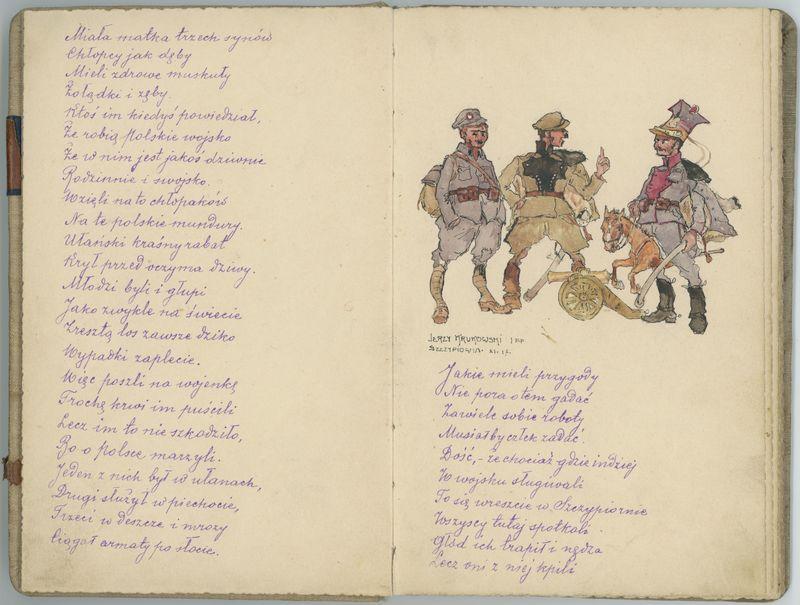 Miała matka trzech synów
Chłopcy jak dęby
Mieli zdrowe muskuły
Żołądki i zęby.
Ktoś im kiedyś powiedział,
Że robią polskie wojsko
Że w nim jest jakoś dziwnie
Rodzinnie i swojsko.
Wzięli na to chłopaków
Na te polskie mundury.
Ułański kraśny rabat
Krył przed oczyma dziwy.
Młodzi byli i głupi
Jako zwykle na świecie
Zresztą los zawsze dziko
Wypadki zaplecie.
Więc poszli na wojenkę
Trochę krwi im puścili
Lecz im to nie szkodziło,
Bo o Polsce marzyli.
Jeden z nich był w ułanach,
Drugi służył w piechocie,
Trzeci w deszcze i mrozy
Ciągał armaty po słocie.
JERZY KRUKOWSKI 1 PP
SZCZYPIORNA. XI. 17.
Jakie mieli przygody
Nie pora o tem gadać
Zawiele sobie roboty
Musiałby człek zadać.
Dość,- że chociaż gdzieindziej
W wojsku sługiwali
To się wreszcie w Szczypiornie
Wszyscy tutaj spotkali.
Głód ich trapił i nędza
Lecz oni z niej kpili